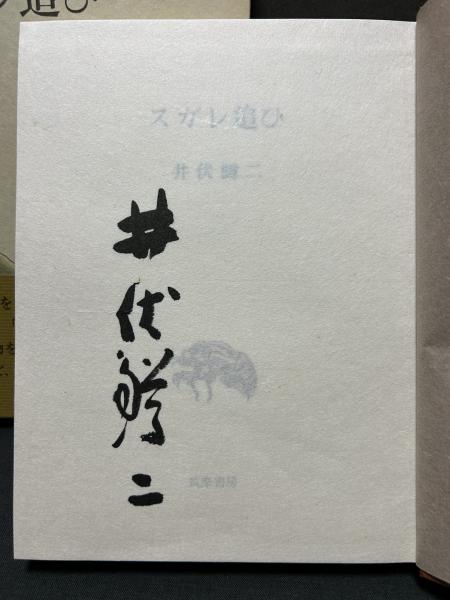 追ひ
スガレ追ひ
井伏鱒二
井伏鱒二
筑摩書房
を